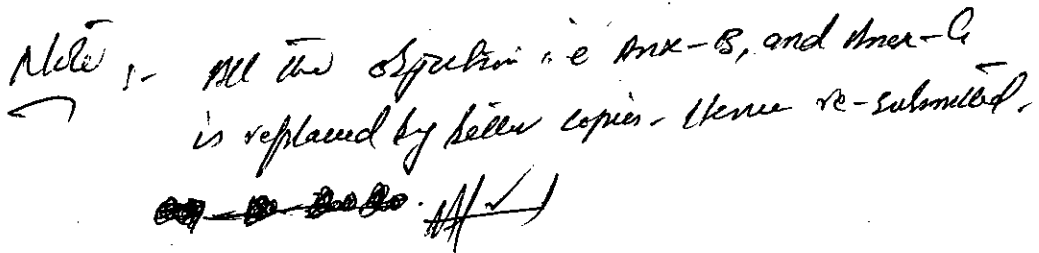 Note :- All the objection i.e Anx-B, and Anex-G
is replaced by better copies. Hence re-submitted.